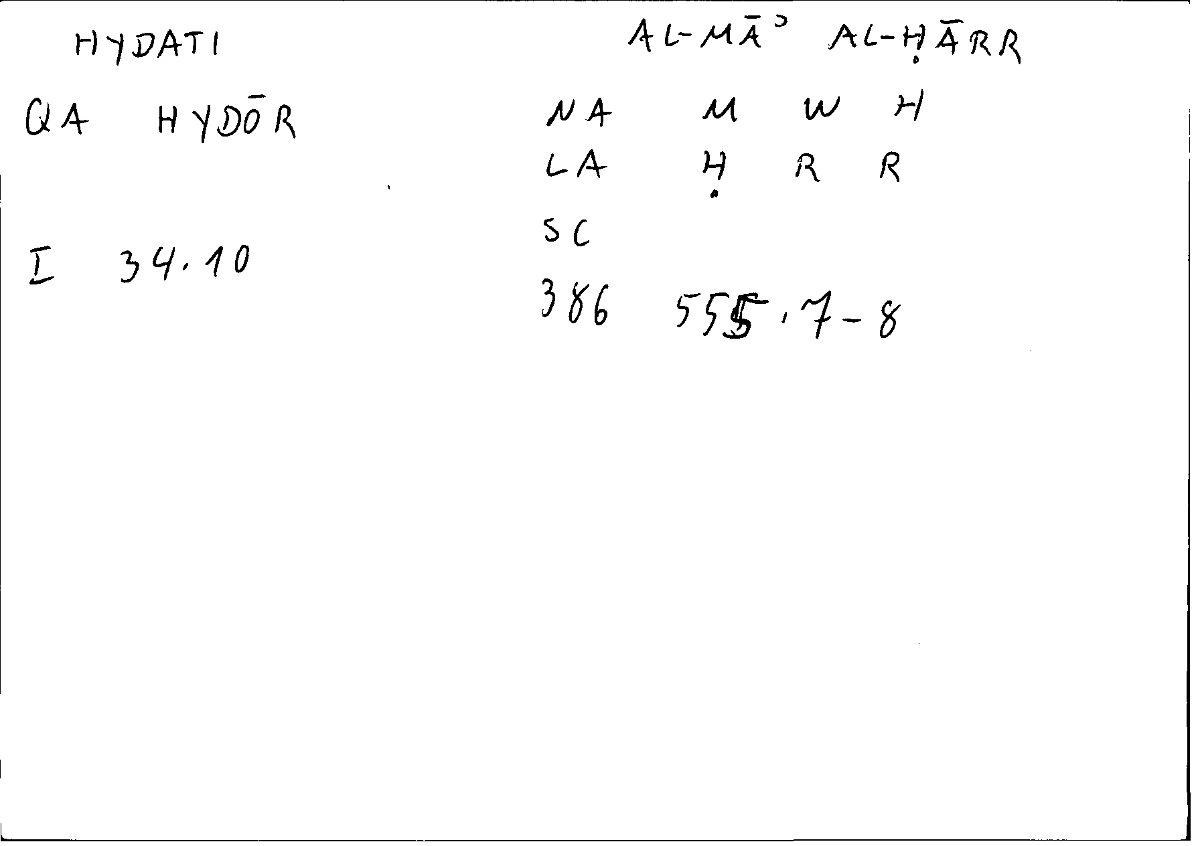 HYDATI AL-MĀʾ AL-ḤĀRR
QA HYDŌR NA M W H
LA Ḥ R R
SC
I 34.10
386 555.7-8